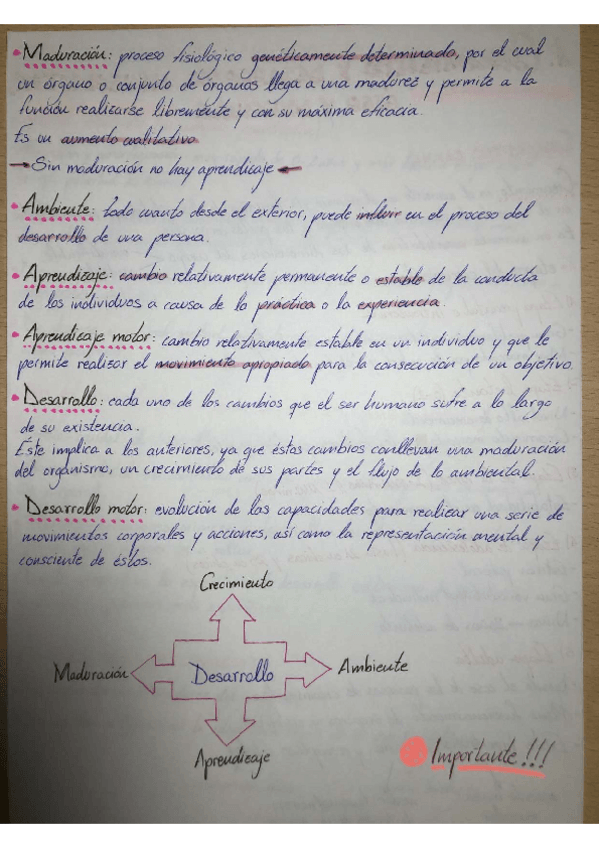 • Maduración: proceso fisiológico genéticamente determinado, por el cual
un órgano o conjunto de órganos llega a una madurez y permite a la
función realizarse libremente y con su máxima eficacia.
Es un aumento cualitativo
→ Sin maduración no hay aprendizaje ←
• Ambiente: todo cuanto desde el exterior, puede influir en el proceso del
desarrollo de una persona.
• Aprendizaje: cambio relativamente permanente o estable de la conducta
de los individuos a causa de la práctica o la experiencia.
• Aprendizaje motor: cambio relativamente estable en un individuo y que le
permite realizar el movimiento apropiado para la consecución de un objetivo.
• Desarrollo: cada uno de los cambios que el ser humano sufre a lo largo
de su existencia.
Este implica a los anteriores, ya que éstos cambios conllevan una maduración
del organismo, un crecimiento de sus partes y el flujo de lo ambiental.
• Desarrollo motor: evolución de las capacidades para realizar una serie de
movimientos corporales y acciones, así como la representación mental y
consciente de éstos.
Crecimiento
Maduración
Desarrollo
Ambiente
Aprendizaje
Importante!!!